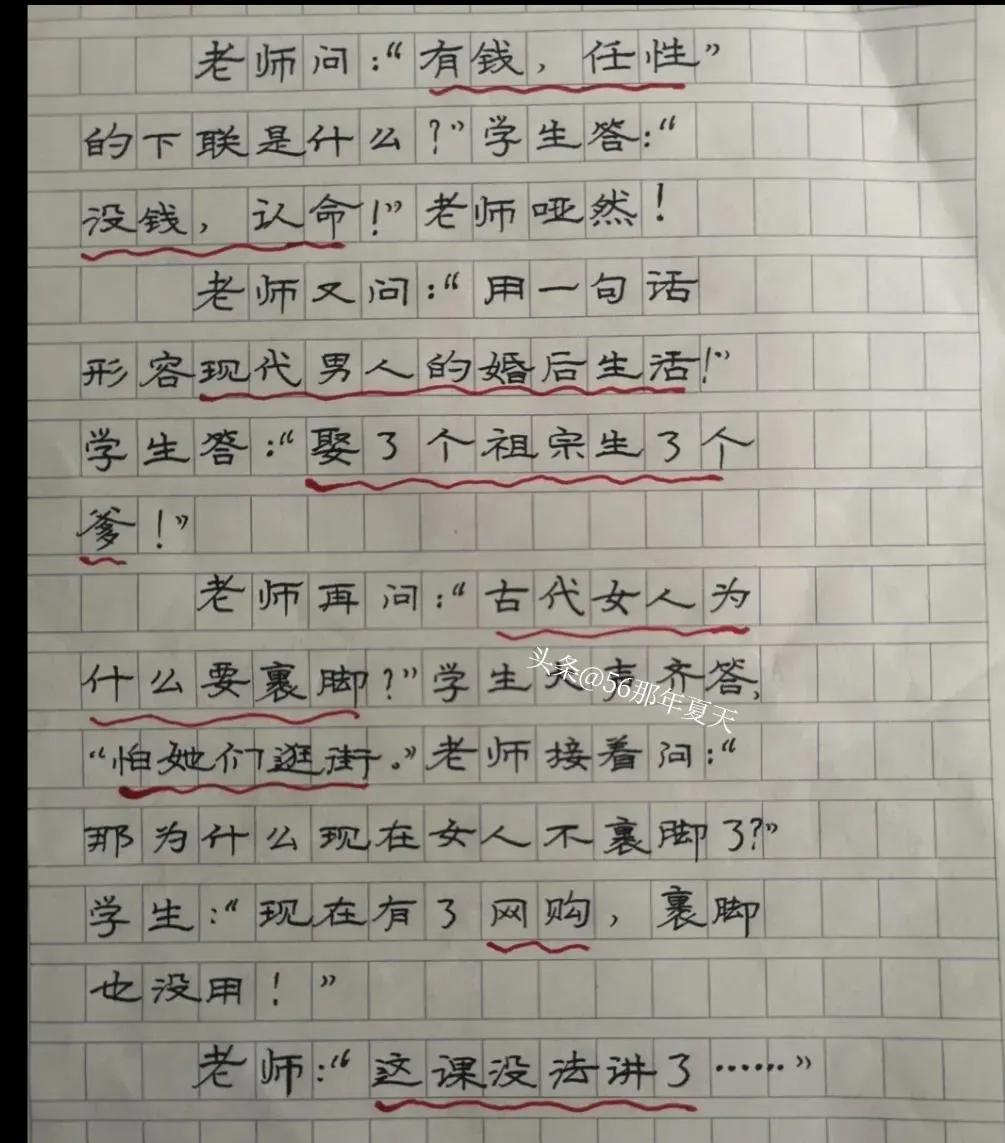 老师问：“有钱，任性”
的下联是什么？”学生答：“
没钱，认命！”老师哑然！
老师又问：“用一句话
形容现代男人的婚后生活！”
学生答：“娶了个祖宗生了个
爹！”
老师再问：“古代女人为
什么要裹脚？”学生大声齐答，
“怕她们逛街。”老师接着问：“
那为什么现在女人不裹脚了？”
学生：“现在有了网购，裹脚
也没用！”
老师：“这课没法讲了……”
头条@56那年夏天